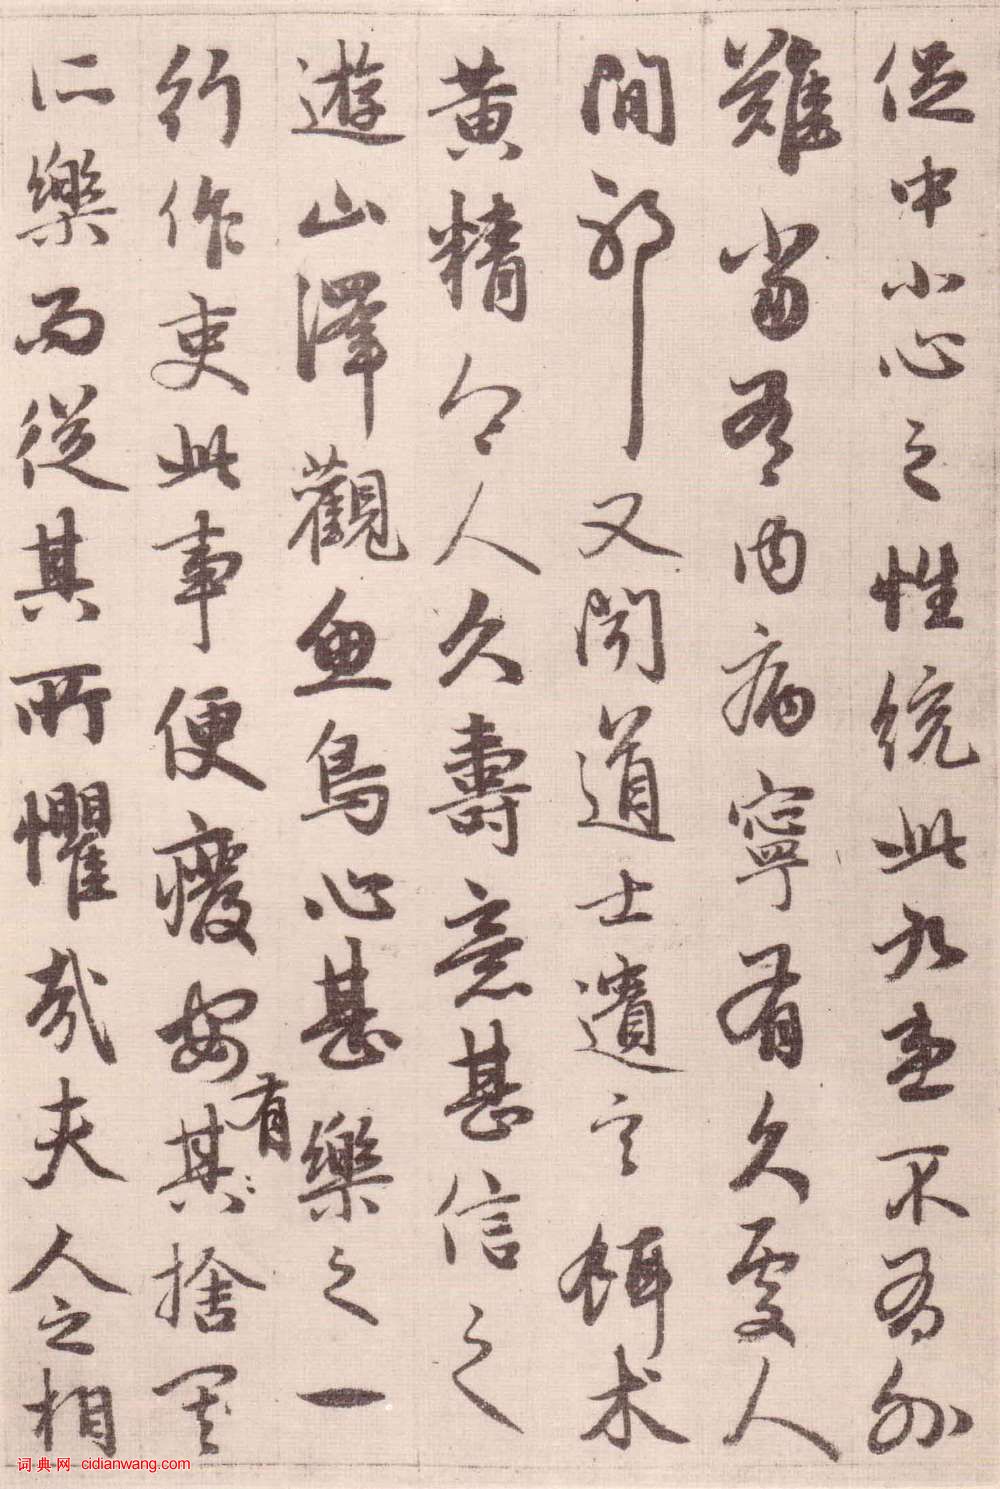 促中小心之性統此九患不有外
難當有內病寧有久處人
間邪又聞道士遺言餌术
黃精令人久壽意甚信之
遊山澤觀魚鳥心甚樂之一
行作吏此事便廢安其有捨其
所樂而從其所懼哉夫人之相
词典网 cidianwang.com